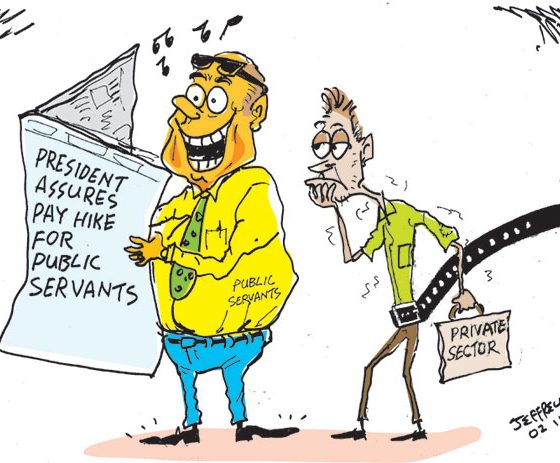 PRESIDENT
ASSURES
PAY HIKE
FOR
PUBLIC
SERVANTS
PUBLIC
SERVANTS
PRIVATE
SECTOR
02